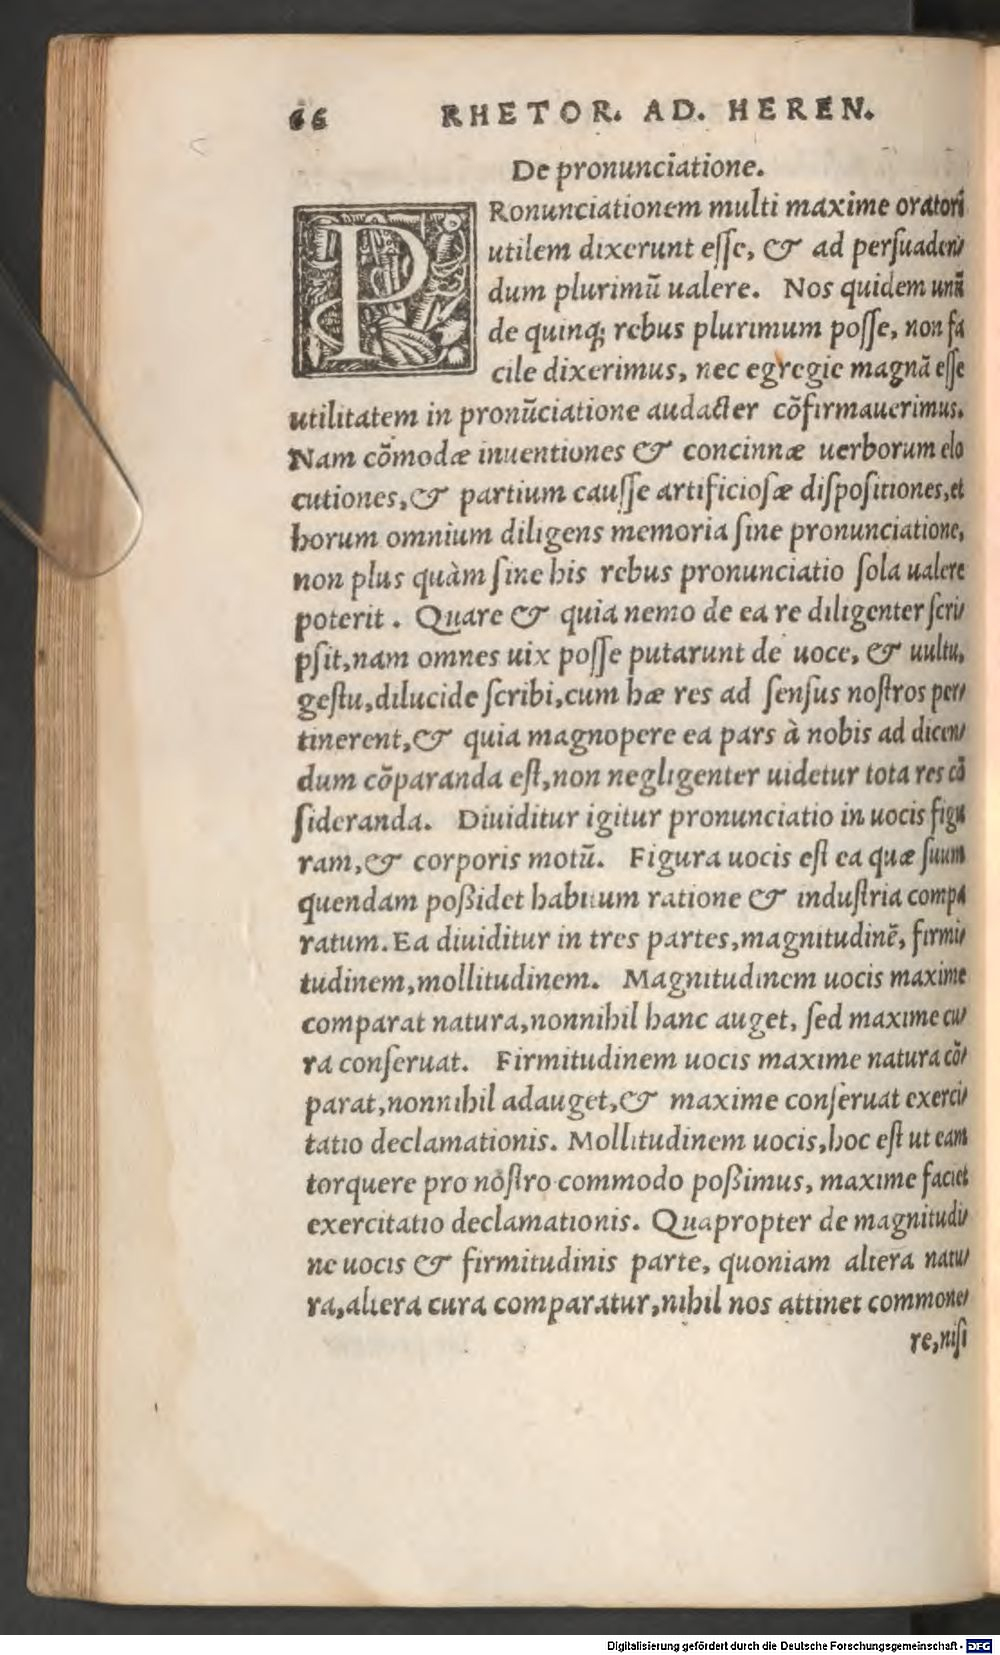 66 RHETOR. AD. HEREN.
De pronunciatione.
PRonunciationem multi maxime oratori
utilem dixerunt eſſe, & ad perſuaden⸗
dum plurimū ualere. Nos quidem unū
de quinq; rebus plurimum poſſe, non fa
cile dixerimus, nec egregie magnā eſſe
utilitatem in pronūciatione audacter cōfirmauerimus.
Nam cōmodæ inuentiones & concinnæ uerborum elo
cutiones, & partium cauſſe artificioſæ diſpoſitiones, et
horum omnium diligens memoria ſine pronunciatione,
non plus quàm ſine his rebus pronunciatio ſola ualere
poterit. Quare & quia nemo de ea re diligenter ſcri⸗
pſit, nam omnes uix poſſe putarunt de uoce, & uultu,
geſtu, dilucide ſcribi, cum hæ res ad ſenſus noſtros per⸗
tinerent, & quia magnopere ea pars à nobis ad dicen⸗
dum cōparanda eſt, non negligenter uidetur tota res cō
ſideranda. Diuiditur igitur pronunciatio in uocis figu
ram, & corporis motū. Figura uocis eſt ea quæ ſuum
quendam poßidet habitum ratione & induſtria compa
ratum. Ea diuiditur in tres partes, magnitudinē, firmi⸗
tudinem, mollitudinem. Magnitudinem uocis maxime
comparat natura, nonnihil hanc auget, ſed maxime cu⸗
ra conſeruat. Firmitudinem uocis maxime natura cō⸗
parat, nonnihil adauget, & maxime conſeruat exerci⸗
tatio declamationis. Mollitudinem uocis, hoc eſt ut eam
torquere pro noſtro commodo poßimus, maxime faciet
exercitatio declamationis. Quapropter de magnitudi⸗
ne uocis & firmitudinis parte, quoniam altera natu⸗
ra, altera cura comparatur, nihil nos attinet commone⸗
re, niſi
Digitalisierung gefördert durch die Deutsche Forschungsgemeinschaft - DFG